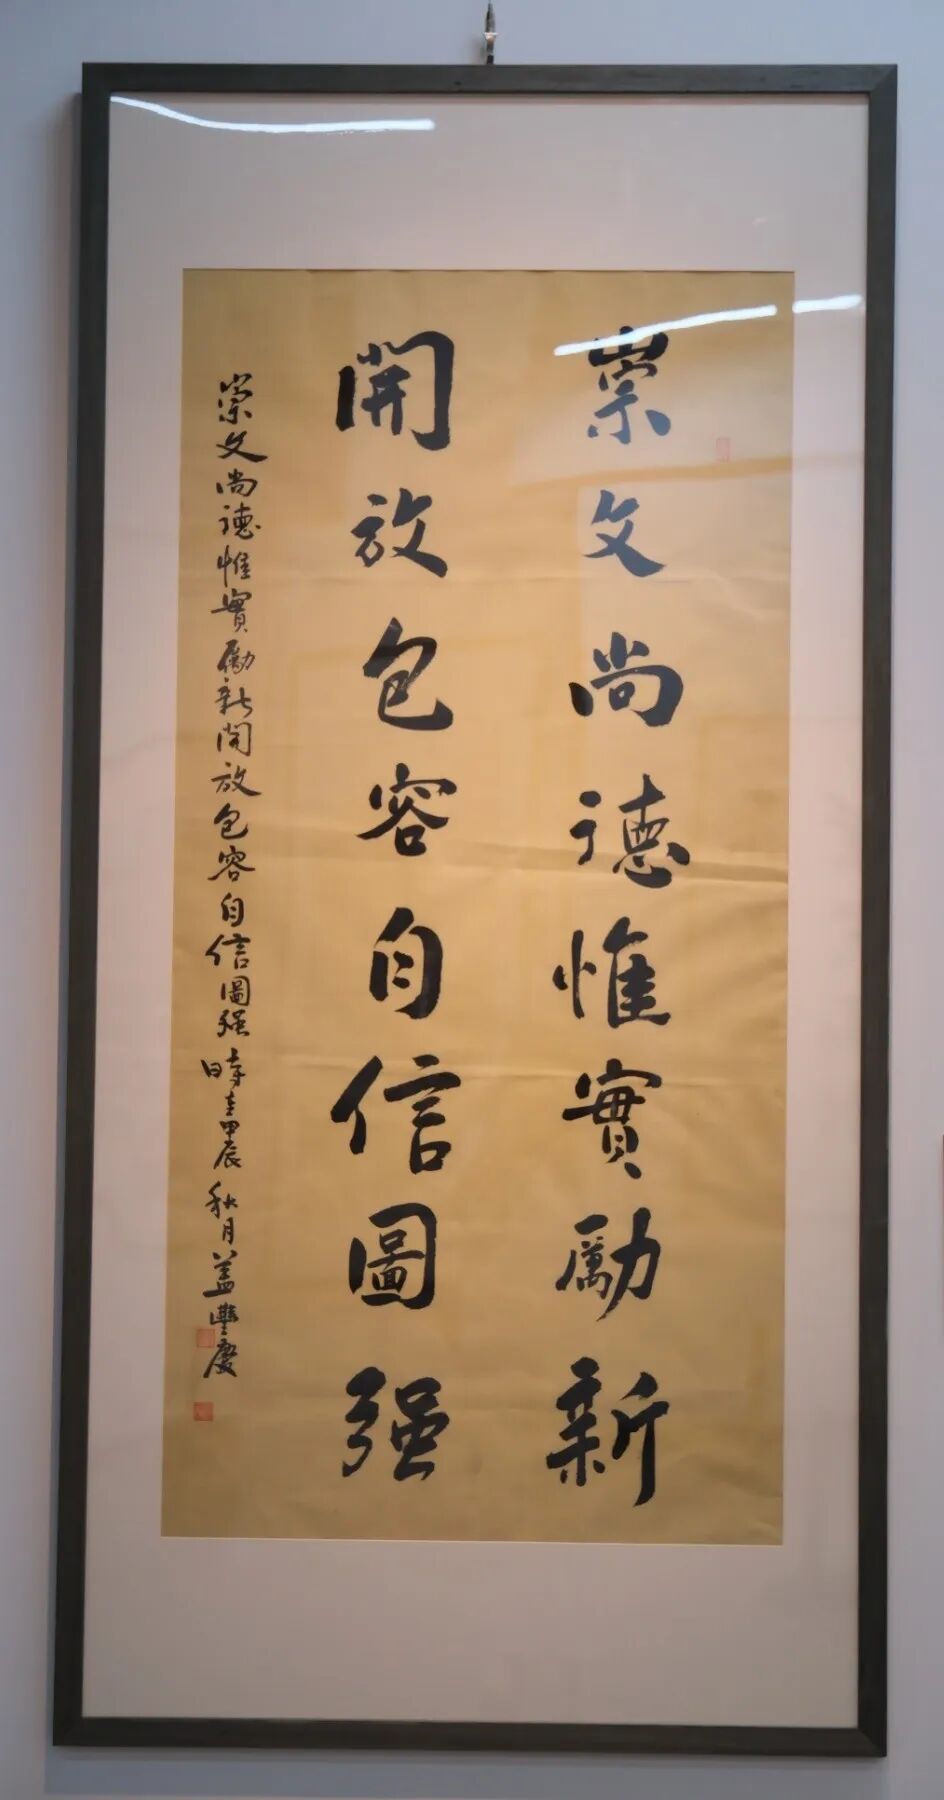 崇文尚德惟實勵新
開放包容自信圖强
崇文尚德惟實勵新開放包容自信圖强 時在甲辰秋月 蓋豐慶